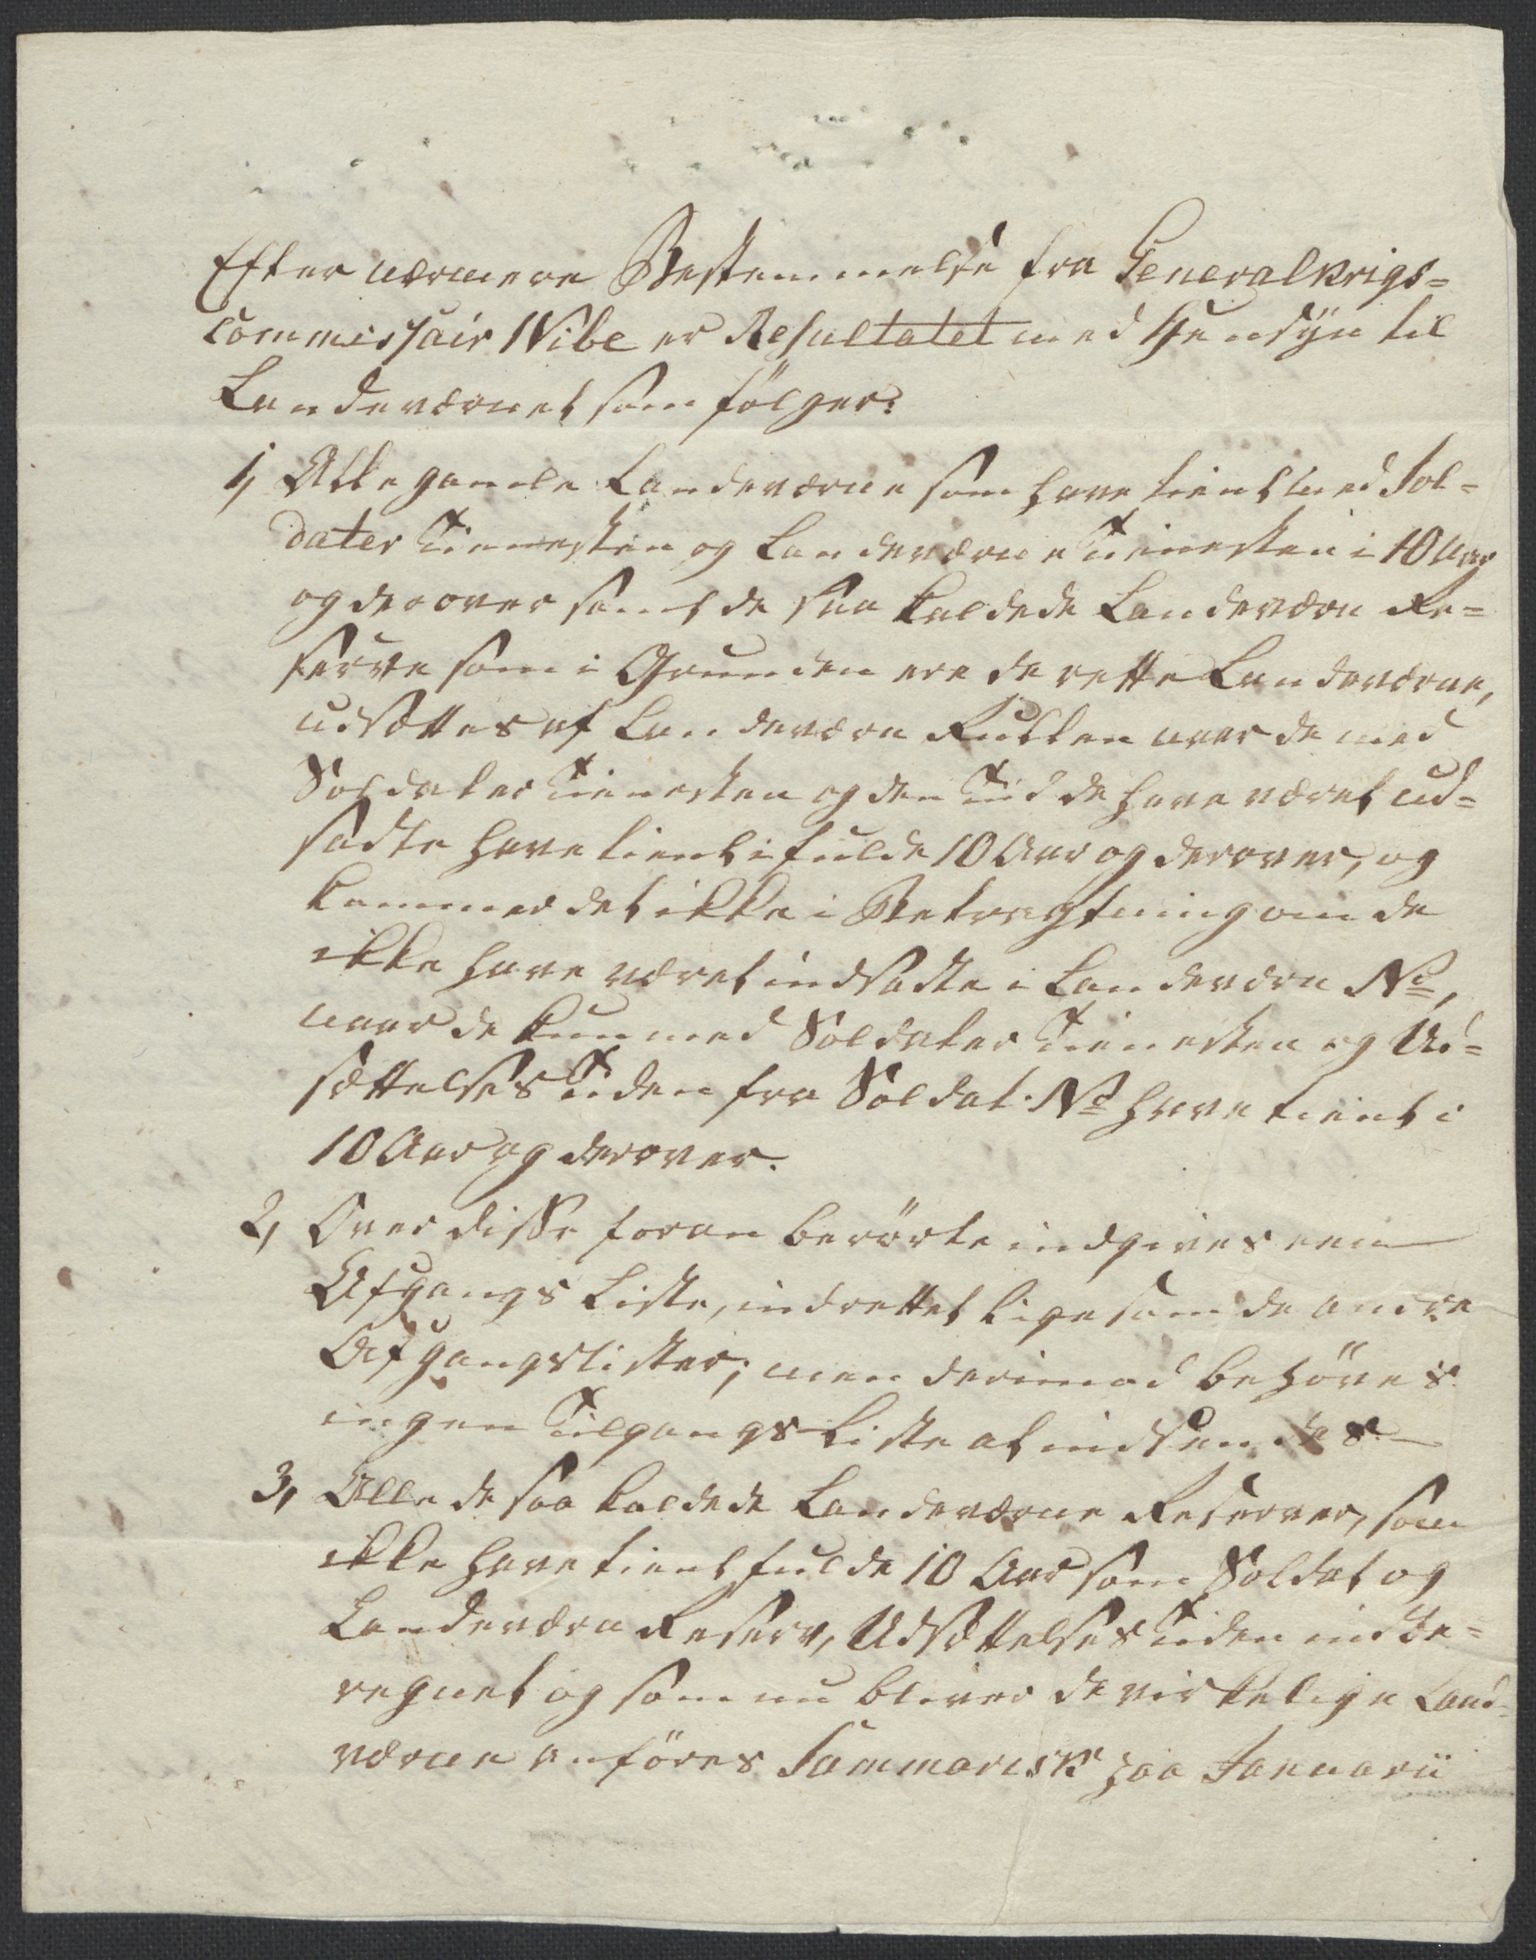 Efter nærmere Bestemmelse fra Generalkrigs=
commissair Wibe er Resultatet med Hensyn til
Landeværnet som følger:
1, Alle gamle Landeværne som have tient med Sol=
dater Tienesten og Landeværne Tienesten i 10 Aar
og derover samt de saa kaldede Landeværn Re=
serve som i Grunden ere de rette Landeværne,
udsættes af Landeværn Rullen naar de med
Soldater Tienesten og den Tiid de have været ud=
satte have tient i fulde 10 Aar og derover, og
kommer det ikke i Betragtning om de
ikke have været indsatte i Landeværn No,
naar de kun med Soldater Tienesten og Ud=
sættelses Tiden fra Soldat No have tient i
10 Aar og derover.
2, Over disse foran berørte indgives een
Afgangs Liste, indrettet ligesom de andre
Afgangslister; men derimod behøves
ingen Tilgangs Liste at indsendes.
3, Alle de saa kaldede Landeværne Reserver, som
ikke have tient fulde 10 Aar som Soldat og
Landeværn Reserv, Udsættelses Tiden indbe=
regnet og som nu bliver de virkelige Land=
værne anføres Summarisk paa Januarii